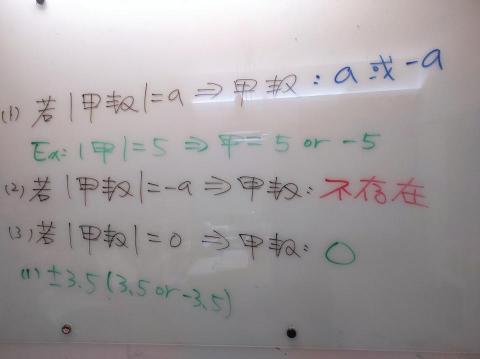 (1) 若|甲数|=a ⇒ 甲数:a 或 -a
Ex: |甲|=5 ⇒ 甲=5 or -5
(2) 若|甲数|=-a ⇒ 甲数:不存在
(3) 若|甲数|=0 ⇒ 甲数:0
(1) ±3.5 (3.5 or -3.5)